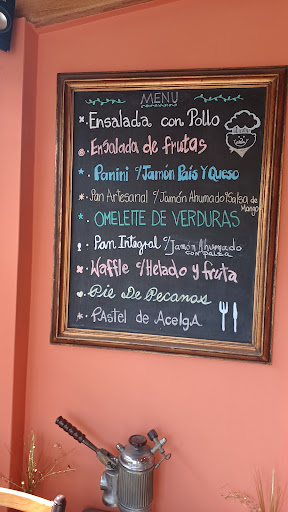 MENU
Ensalada con Pollo
Ensalada de frutas
Panini c/Jamón País Y Queso
Pan Artesanal c/Jamón Ahumado y Salsa de
Mango
OMELETTE DE VERDURAS
Pan Integral c/Jamón Ahumado
con palta
Waffle c/Helado y fruta
Pie De Pecanas
PAstel de AcelgA